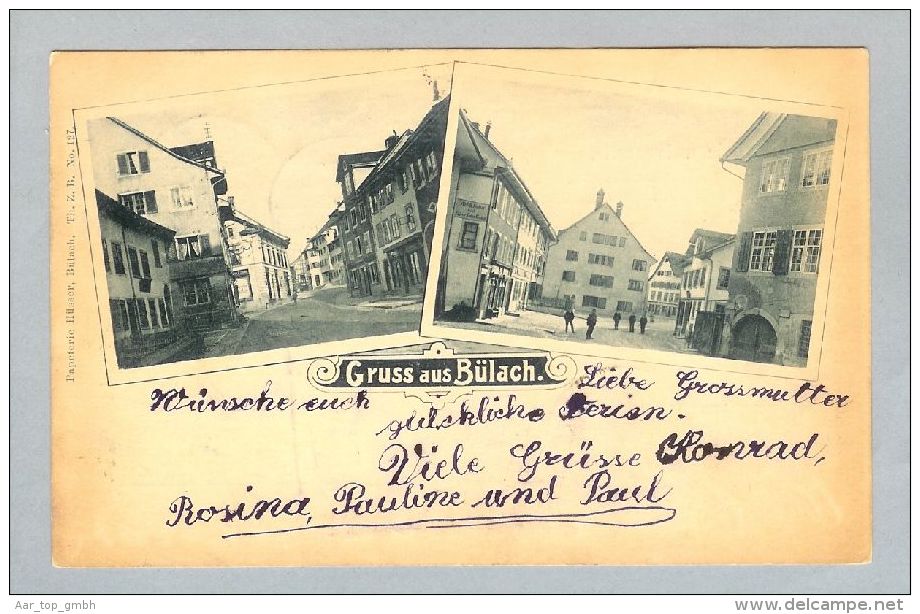 Papeterie Hüsser, Bülach, Th. Z. B. No. 127.
Gruss aus Bülach.
Liebe Grossmutter
Wünsche euch glückliche Ferien.
Viele Grüsse Konrad,
Rosina, Pauline und Paul
Aar_top_gmbh
delcampe.net